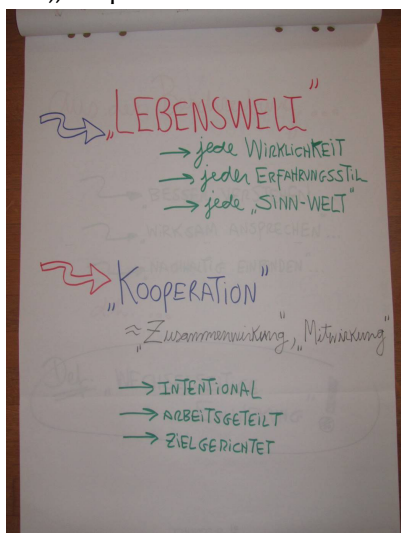 „LEBENSWELT"
→ jede WIRKLICHKEIT
→ jeder ERFAHRUNGSSTIL
→ jede „SINN-WELT"
„KOOPERATION"
≈ „Zusammenwirkung", „Mitwirkung"
→ INTENTIONAL
→ ARBEITSGETEILT
→ ZIELGERICHTET